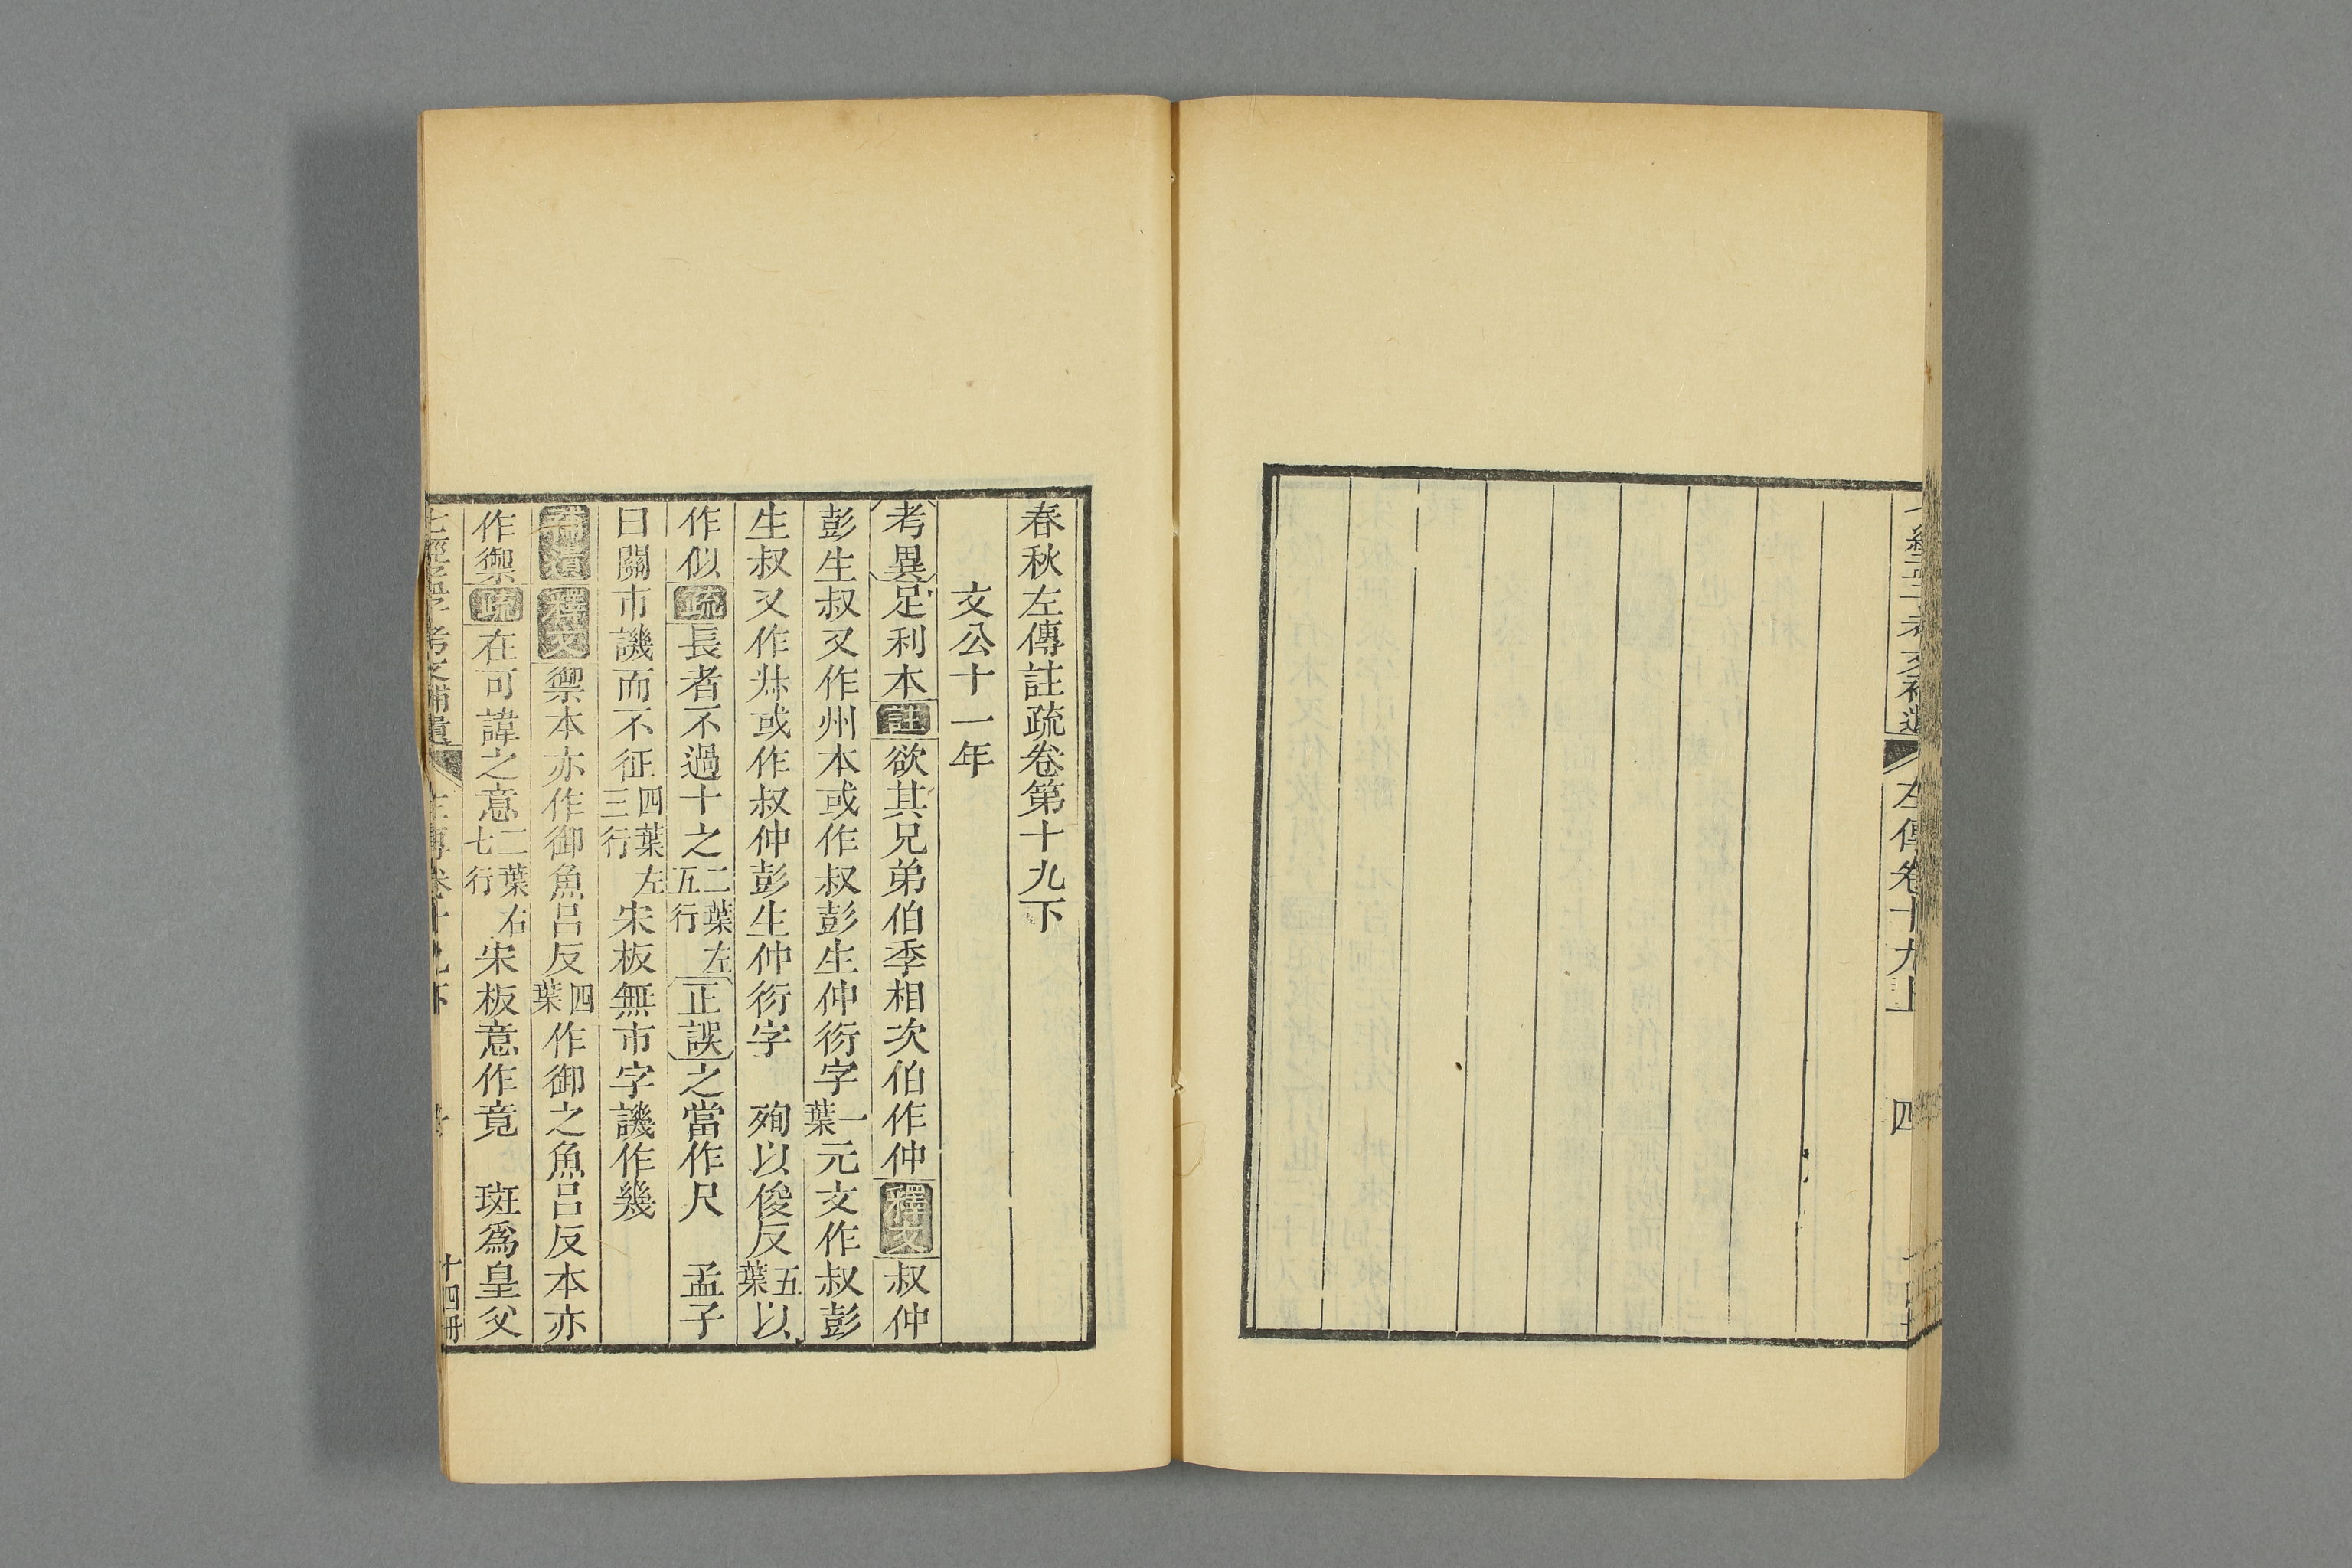 七經孟子考文補遺 左傳卷十九上 四
春秋左傳註疏卷第十九下
文公十一年
考異足利本註欲其兄弟伯季相次伯作仲釋文叔仲
彭生叔又作州本或作叔彭生仲衍字一葉元文作叔彭
生叔又作尗或作叔仲彭生仲衍字 殉以俊反五葉以
作似疏長者不過十之二葉左五行正誤之當作尺 孟子
曰關市譏而不征四葉左三行宋板無市字譏作幾
補遺釋文禦本亦作御魚呂反四葉作御之魚呂反本亦
作禦疏在可諱之意二葉右七行宋板意作竟 斑為皇父
七經孟子考文補遺 左傳卷十九下 十四冊